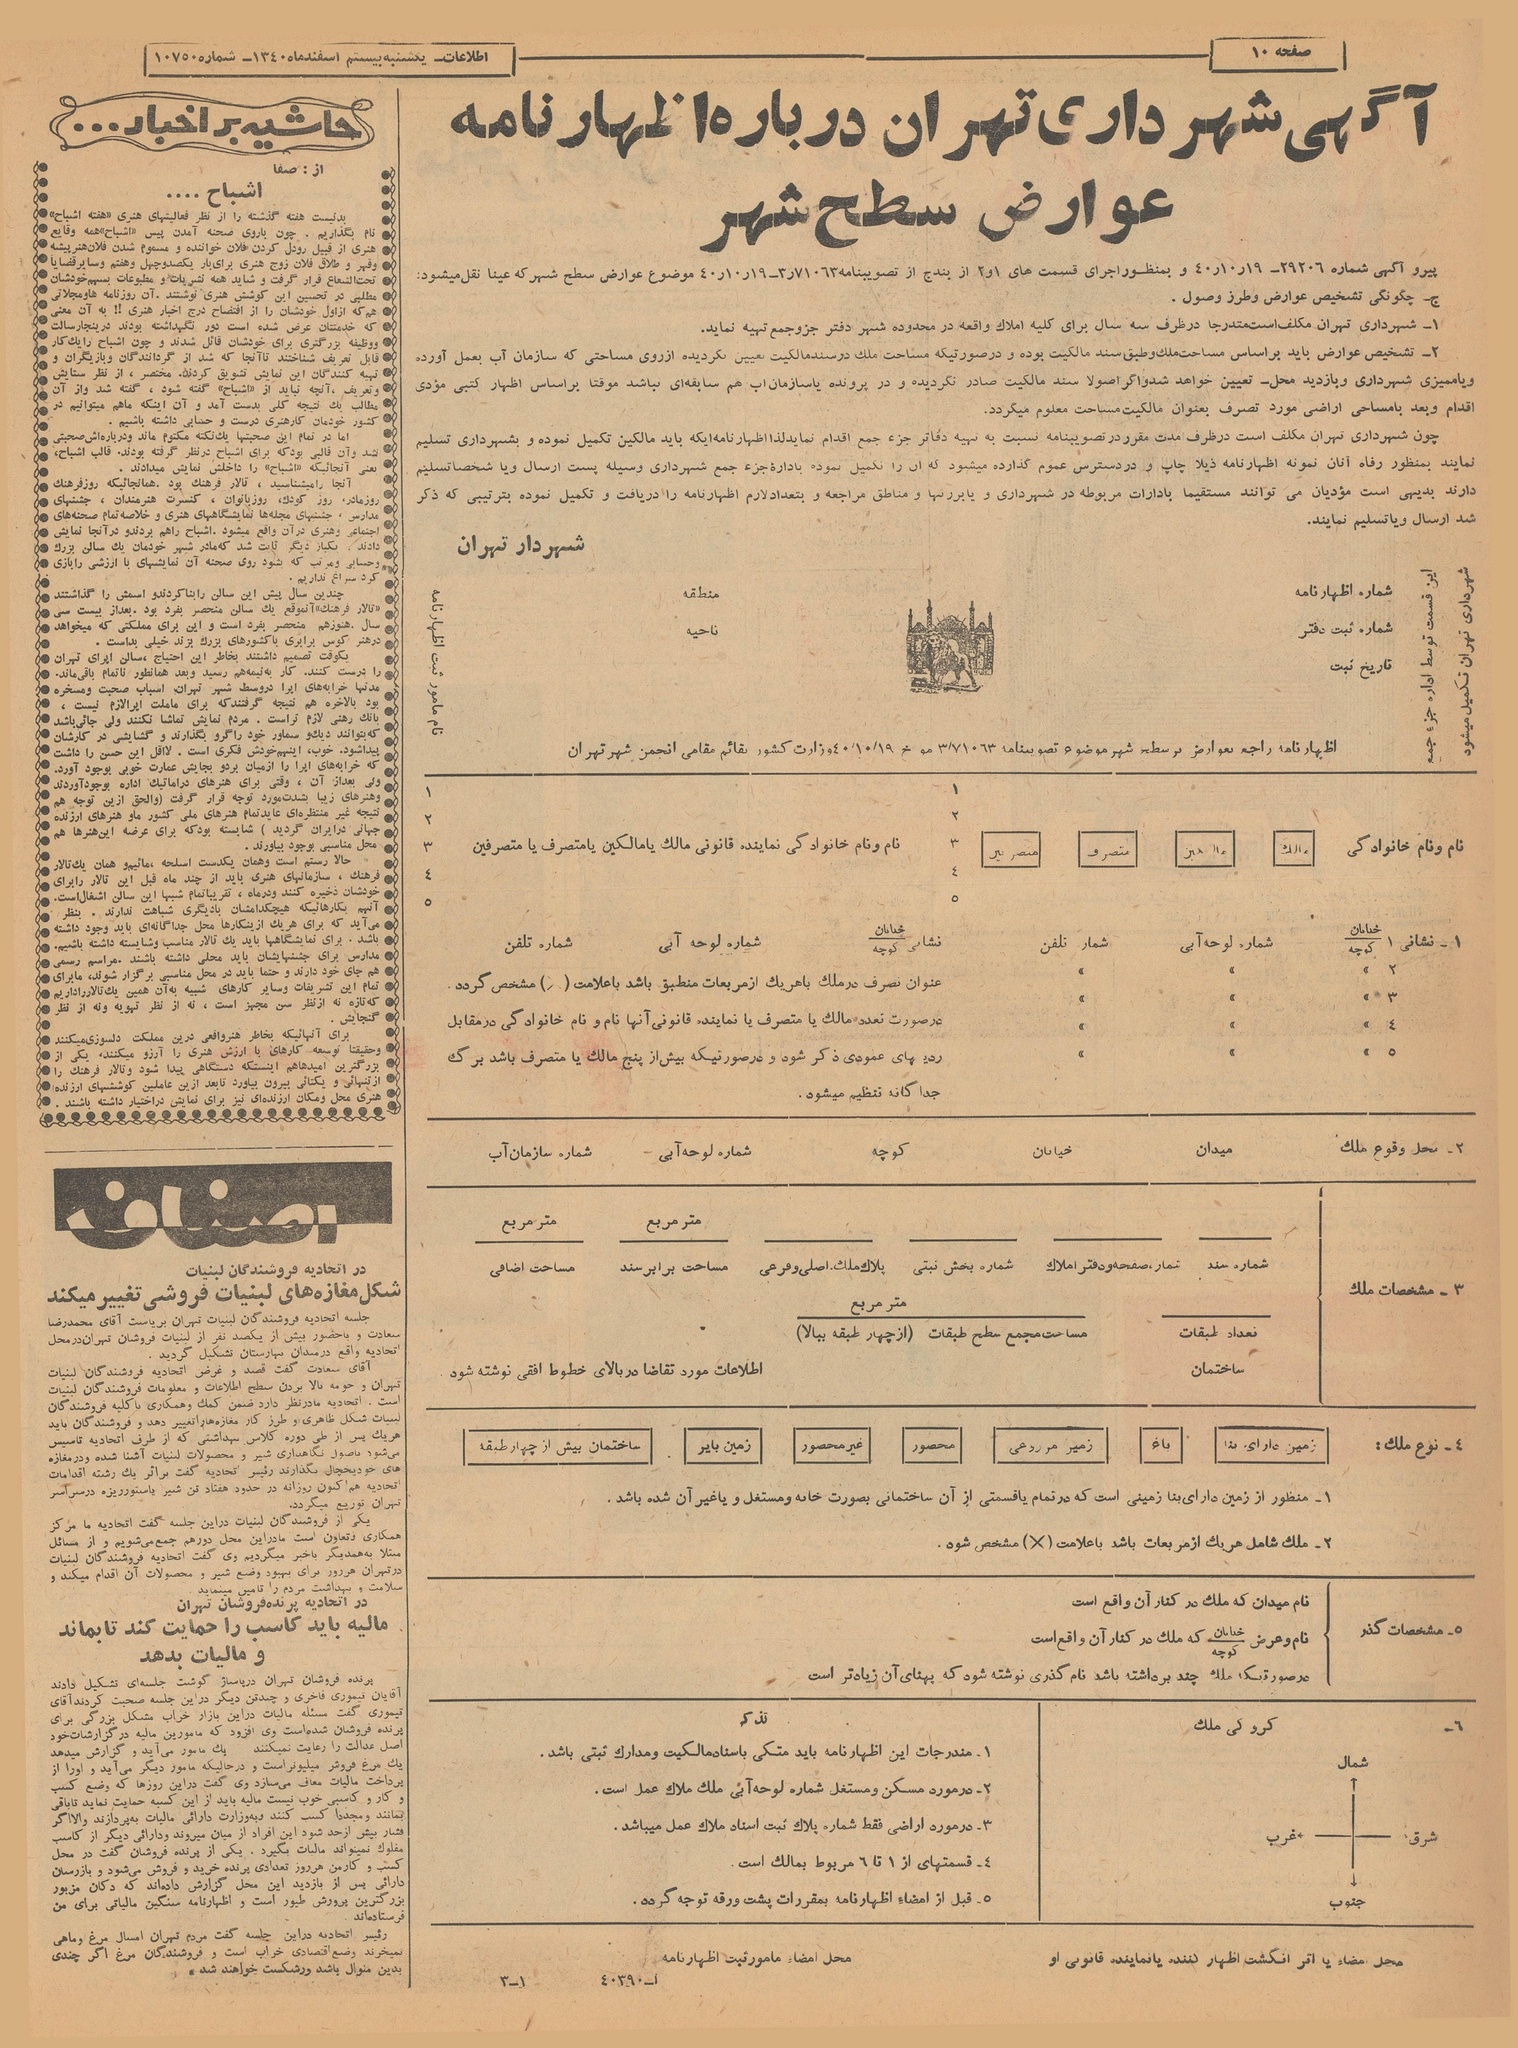 صفحه ۱۰
اطلاعات ـ یکشنبه بیستم اسفندماه ۱۳۴۰ ـ شماره ۱۰۷۵۰
آگهی شهرداری تهران درباره اظهارنامه
عوارض سطح شهر
پیرو آگهی شماره ۲۹۲۰۶ ـ ۱۹ر۱۰ر۴۰ و بمنظور اجرای قسمت های ۱و۲ از بند ج از تصویبنامه ۳ر۷۱۰۶۳ ـ ۱۹ر۱۰ر۴۰ موضوع عوارض سطح شهر که عینا نقل میشود:
ج ـ چگونگی تشخیص عوارض وطرز وصول .
۱ـ شهرداری تهران مکلف است متدرجا درظرف سه سال برای کلیه املاک واقعه در محدوده شهر دفتر جزو جمع تهیه نماید.
۲ـ تشخیص عوارض باید براساس مساحت ملک وطبق سند مالکیت بوده و درصورتیکه مساحت ملک درسند مالکیت تعیین نگردیده ازروی مساحتی که سازمان آب بعمل آورده
ویاممیزی شهرداری وبازدید محل ـ تعیین خواهد شد واگر اصولا سند مالکیت صادر نگردیده و در پرونده یاسازمان آب هم سابقه‌ای نباشد موقتا براساس اظهار کتبی مؤدی
اقدام وبعد بامساحی اراضی مورد تصرف بعنوان مالکیت مساحت معلوم میگردد.
چون شهرداری تهران مکلف است درظرف مدت مقرر در تصویبنامه نسبت به تهیه دفاتر جزء جمع اقدام نماید لذا اظهارنامه ایکه باید مالکین تکمیل نموده و بشهرداری تسلیم
نمایند بمنظور رفاه آنان نمونه اظهارنامه ذیلا چاپ و دردسترس عموم گذارده میشود که آن را تکمیل نموده باداره جزء جمع شهرداری وسیله پست ارسال ویا شخصا تسلیم
دارند بدیهی است مؤدیان می توانند مستقیما بادارات مربوطه در شهرداری و یابرزنها و مناطق مراجعه و بتعداد لازم اظهارنامه را دریافت و تکمیل نموده بترتیبی که ذکر
شد ارسال ویاتسلیم نمایند.
شهردار تهران
شهرداری تهران تکمیل میشود
این قسمت توسط اداره جزء جمع
شماره اظهارنامه
شماره ثبت دفتر
تاریخ ثبت
منطقه
ناحیه
نام مامور ثبت اظهارنامه
اظهارنامه راجع بعوارض برسطح شهر موضوع تصویبنامه ۳/۷۱۰۶۳ مورخ ۴۰/۱۰/۱۹ وزارت کشور بقائم مقامی انجمن شهر تهران
نام ونام خانوادگی
مالک
مالکین
متصرف
متصرفین
۱
۲
۳
۴
۵
نام ونام خانوادگی نماینده قانونی مالک یامالکین یامتصرف یا متصرفین
۱
۲
۳
۴
۵
۱ـ نشانی ۱ خیابان کوچه شماره لوحه آبی شمار تلفن
۲ » » »
۳ » » »
۴ » » »
۵ » » »
نشانی خیابان کوچه شماره لوحه آبی شماره تلفن
عنوان تصرف درملک باهریک از مربعات منطبق باشد باعلامت ( ) مشخص گردد.
درصورت تعدد مالک یا متصرف یا نماینده قانونی آنها نام و نام خانوادگی درمقابل
ردیفهای عمودی ذکر شود و درصورتیکه بیش از پنج مالک یا متصرف باشد برگ
جداگانه تنظیم میشود.
۲ـ محل وقوع ملک میدان خیابان کوچه شماره لوحه آبی شماره سازمان آب
۳ـ مشخصات ملک
متر مربع متر مربع
شماره سند شماره صفحه ودفتر املاک شماره بخش ثبتی پلاک ملک، اصلی وفرعی مساحت برابر سند مساحت اضافی
متر مربع
تعداد طبقات مساحت مجمع سطح طبقات (از چهار طبقه ببالا)
ساختمان اطلاعات مورد تقاضا دربالای خطوط افقی نوشته شود
۴ـ نوع ملک: زمین دارای بنا باغ زمین مزروعی محصور غیرمحصور زمین بایر ساختمان بیش از چهارطبقه
۱ـ منظور از زمین دارای بنا زمینی است که درتمام یاقسمتی از آن ساختمانی بصورت خانه ومستغل و یاغیر آن شده باشد.
۲ـ ملک شامل هریک از مربعات باشد باعلامت (X) مشخص شود.
۵ـ مشخصات گذر
نام میدان که ملک در کنار آن واقع است
نام وعرض خیابان کوچه که ملک در کنار آن واقع است
درصورتیکه ملک چند برداشته باشد نام گذری نوشته شود که پهنای آن زیادتر است
۶ـ کروکی ملک
شمال
شرق
غرب
جنوب
تذکر
۱ـ مندرجات این اظهارنامه باید متکی باسناد مالکیت ومدارک ثبتی باشد.
۲ـ درمورد مسکن ومستغل شماره لوحه آبی ملک ملاک عمل است.
۳ـ درمورد اراضی فقط شماره پلاک ثبت اسناد ملاک عمل میباشد.
۴ـ قسمتهای از ۱ تا ۶ مربوط بمالک است.
۵ـ قبل از امضاء اظهارنامه بمقررات پشت ورقه توجه گردد.
محل امضاء یا اثر انگشت اظهار کننده یانماینده قانونی او
محل امضاء مامور ثبت اظهارنامه
آـ۴۰۳۹۰ ۳ـ۱
حاشیه بر اخبار...
از : صفا
اشباح ....
بدنیست هفته گذشته را از نظر فعالیتهای هنری «هفته اشباح»
نام بگذاریم . چون باروی صحنه آمدن پیس «اشباح» همه وقایع
هنری از قبیل رودل کردن فلان خواننده و مسموم شدن فلان هنرپیشه
وقهر و طلاق فلان زوج هنری برای بار یکصدوچهل وهفتم وسایر قضایا
تحت‌الشعاع قرار گرفت و شاید همه نشریات و مطبوعات بسهم خودشان
مطلبی در تحسین این کوشش هنری نوشتند . آن روزنامه هاومجلاتی
هم که ازاول خودشان را از افتضاح درج اخبار هنری !! به آن معنی
که خدمتتان عرض شده است دور نگهداشته بودند دراینجا رسالت
ووظیفه بزرگتری برای خودشان قائل شدند و چون اشباح را یک کار
قابل تعریف شناختند تاآنجا که شد از گردانندگان وبازیگران و
تهیه کنندگان این نمایش تشویق کردند. مختصر ، از نظر ستایش
وتعریف ،آنچه نباید از «اشباح» گفته شود ، گفته شد واز آن
مطالب یک نتیجه کلی بدست آمد و آن اینکه ماهم میتوانیم در
کشور خودمان کارهنری درست و حسابی داشته باشیم .
اما در تمام این صحبتها یک نکته مکتوم ماند ودرباره‌اش صحبتی
نشد وآن قالبی بود که برای اشباح درنظر گرفته بودند. قالب اشباح،
یعنی آنجائیکه «اشباح» را داخلش نمایش میدادند .
آنجا رامیشناسید ، تالار فرهنگ بود .همانجائیکه روزفرهنگ
روزمادر، روز کودک، روزبانوان ، کنسرت هنرمندان ، جشنهای
مدارس ، جشنهای مجله‌ها نمایشگاههای هنری و خلاصه تمام صحنه‌های
اجتماعی وهنری درآن واقع میشود .اشباح راهم بردندو درآنجا نمایش
دادند . یکبار دیگر ثابت شد که مادر شهر خودمان یک سالن بزرگ
وحسابی ومرتب که بشود روی صحنه آن نمایشهای با ارزشی رابازی
کرد سراغ نداریم .
چندین سال پیش این سالن رابناکردندو اسمش را گذاشتند
«تالار فرهنگ» آنموقع یک سالن منحصر بفرد بود .بعداز بیست سی
سال .هنوزهم منحصر بفرد است و این برای مملکتی که میخواهد
درهنر کوس برابری باکشورهای بزرگ بزند خیلی بداست .
یکوقت تصمیم داشتند بخاطر این احتیاج ،سالن اپرای تهران
را درست کنند. کار به نیمه هم رسید وبعد همانطور ناتمام باقی ماند.
مدتها خرابه‌های اپرا دروسط شهر تهران، اسباب صحبت ومسخره
بود بالاخره هم نتیجه گرفتند که برای ماملت اپرا لازم نیست ،
بانک رهنی لازم تراست . مردم نمایش تماشا نکنند ولی جائی باشد
که بتوانند دیگ و سماور خود را گرو بگذارند و گشایشی در کارشان
پیداشود. خوب، اینهم خودش فکری است . لااقل این حسن را داشت
که خرابه‌های اپرا را ازمیان بردو بجایش عمارت خوبی بوجود آورد.
ولی بعداز آن ، وقتی برای هنرهای دراماتیک اداره بوجودآوردند
وهنرهای زیبا بشدت مورد توجه قرار گرفت (والحق ازین توجه هم
نتیجه غیر منتظره‌ای عاید تمام هنرهای ملی کشور ماو هنرهای ارزنده
جهانی درایران گردید ) شایسته بود که برای عرضه این هنرها هم
محل مناسبی بوجود بیاورند .
حالا رستم است وهمان یکدست اسلحه ،مائیم و همان یک تالار
فرهنگ ، سازمانهای هنری باید از چند ماه قبل این تالار رابرای
خودشان ذخیره کنند ودرماه ، تقریباتمام شبها این سالن اشغال است.
آنهم بکارهائیکه هیچکدامشان بادیگری شباهت ندارند . بنظر
می‌آید که برای هریک ازینکارها محل جداگانه‌ای باید وجود داشته
باشد . برای نمایشگاهها باید یک تالار مناسب وشایسته داشته باشیم.
مدارس برای جشنهایشان باید محلی داشته باشند .مراسم رسمی
هم جای خود دارند و حتما باید در محل مناسبی برگزار شوند، مابرای
تمام این تشریفات وسایر کارهای شبیه به آن همین یک تالار راداریم
که تازه نه ازنظر سن مجهز است ، نه از نظر تهویه ونه از نظر
گنجایش .
برای آنهائیکه بخاطر هنرواقعی درین مملکت دلسوزی میکنند
وحقیقتا توسعه کارهای با ارزش هنری را آرزو میکنند، یکی از
بزرگترین امیدهاهم اینستکه دستگاهی پیدا شود وتالار فرهنگ را
ازتنهائی و یکتائی بیرون بیاورد تابعد ازین عاملین کوششهای ارزنده
هنری محل ومکان ارزنده‌ای نیز برای نمایش دراختیار داشته باشند .
اصناف
در اتحادیه فروشندگان لبنیات
شکل مغازه‌های لبنیات فروشی تغییر میکند
جلسه اتحادیه فروشندگان لبنیات تهران بریاست آقای محمدرضا
سعادت و باحضور بیش از یکصد نفر از لبنیات فروشان تهران درمحل
اتحادیه واقع درمیدان بهارستان تشکیل گردید .
آقای سعادت گفت قصد و غرض اتحادیه فروشندگان لبنیات
تهران و حومه بالا بردن سطح اطلاعات و معلومات فروشندگان لبنیات
است . اتحادیه مادرنظر دارد ضمن کمک وهمکاری باکلیه فروشندگان
لبنیات شکل ظاهری و طرز کار مغازه‌هاراتغییر دهد و فروشندگان باید
هریک پس از طی دوره کلاس بهداشتی که از طرف اتحادیه تاسیس
می‌شود باصول نگاهداری شیر و محصولات لبنیات آشنا شده ودرمغازه
های خودیخچال بگذارند رئیس اتحادیه گفت براثر یک رشته اقدامات
اتحادیه هم اکنون روزانه در حدود هفتاد تن شیر پاستوریزه درسراسر
تهران توزیع میگردد.
یکی از فروشندگان لبنیات دراین جلسه گفت اتحادیه ما مرکز
همکاری وتعاون است مادراین محل دورهم جمع می‌شویم و از مسائل
مبتلا به همدیگر باخبر میگردیم وی گفت اتحادیه فروشندگان لبنیات
درتهران هرروز برای بهبود وضع شیر و محصولات آن اقدام میکند و
سلامت و بهداشت مردم را تامین مینماید
در اتحادیه پرنده فروشان تهران
مالیه باید کاسب را حمایت کند تا بماند
و مالیات بدهد
پرنده فروشان تهران درپاساژ گوشت جلسه‌ای تشکیل دادند
آقایان تیموری فاخری و چندتن دیگر دراین جلسه صحبت کردندآقای
تیموری گفت مسئله مالیات دراین بازار خراب مشکل بزرگی برای
پرنده فروشان شده است وی افزود که مامورین مالیه درگزارشات خود
اصل عدالت را رعایت نمیکنند یک مامور می‌آید و گزارش میدهد
یک مرغ فروش میلیونراست و درحالیکه مامور دیگر می‌آید و اورا از
پرداخت مالیات معاف می‌سازد وی گفت دراین روزها که وضع کسب
و کار و کاسبی خوب نیست مالیه باید از این کسبه حمایت نماید تاباقی
بمانند ومجددا کسب کنند وبه وزارت دارائی مالیات به پردازند والااگر
فشار بیش ازحد شود این افراد از میان میروند ودارائی دیگر از کاسب
مفلوک نمیتواند مالیات بگیرد . یکی از پرنده فروشان گفت در محل
کسب و کارمن هرروز تعدادی پرنده خرید و فروش می‌شود و بازرسان
دارائی پس از بازدید این محل گزارش داده‌اند که دکان مزبور
بزرگترین پرورش طیور است و اظهارنامه سنگین مالیاتی برای من
فرستاده‌اند
رئیس اتحادیه دراین جلسه گفت مردم تهران امسال مرغ وماهی
نمیخرند وضع اقتصادی خراب است و فروشندگان مرغ اگر چندی
بدین منوال باشد ورشکست خواهند شد *